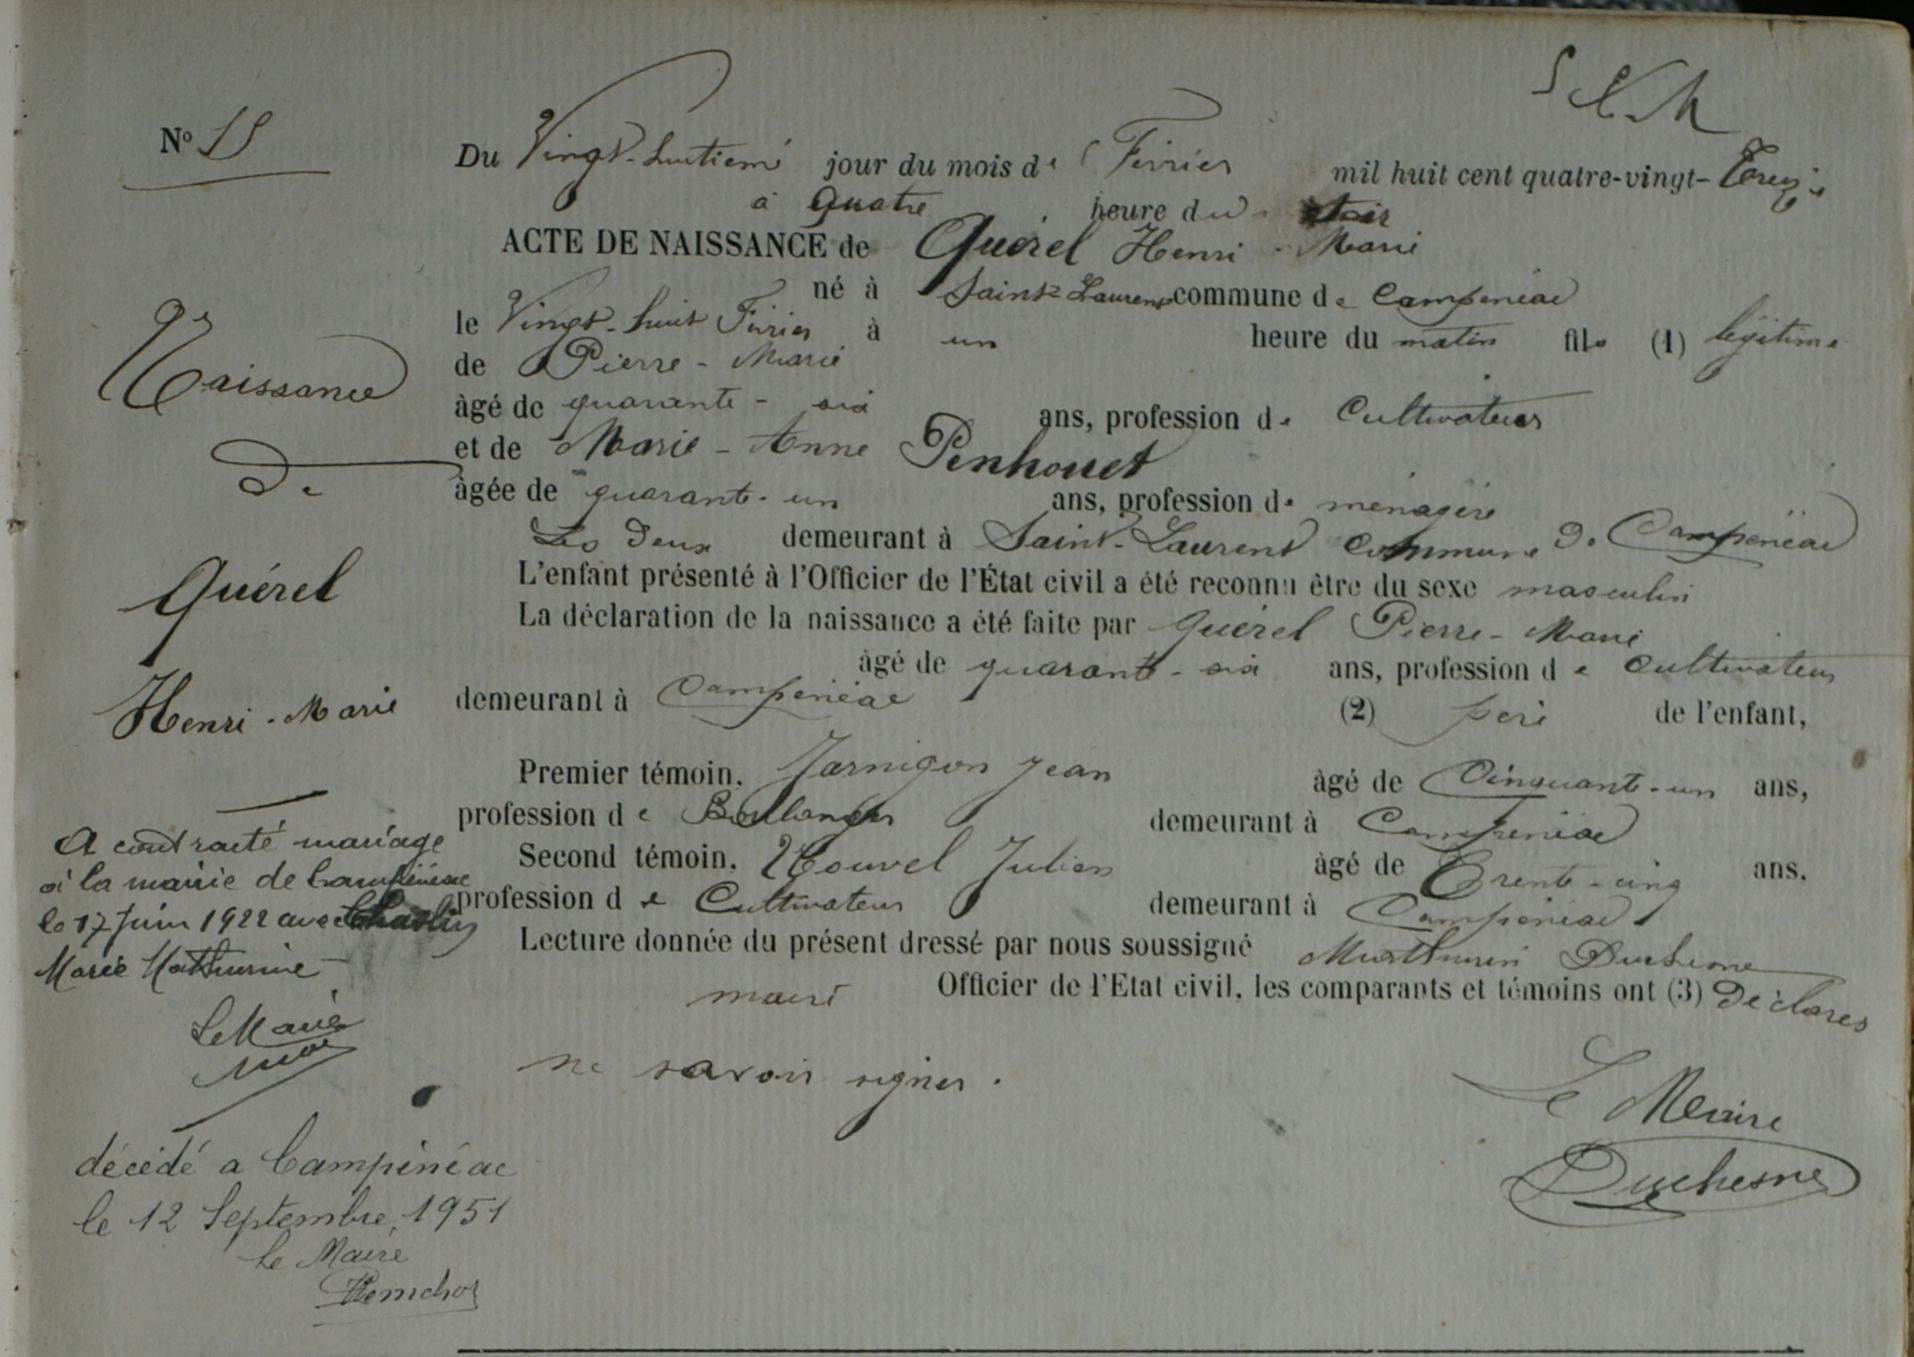 N° 15
Du Vingt-huitième jour du mois de Février mil huit cent quatre-vingt-Treize
à Quatre heure du soir
ACTE DE NAISSANCE de Quérel Henri-Marie
né à Saint Laurent commune de Campénéac
le Vingt-huit Février à un heure du matin fils (1) légitime
de Pierre-Marie
âgé de quarante-six ans, profession de Cultivateur
et de Marie-Anne Penhouet
âgée de quarante-un ans, profession de ménagère
Les deux demeurant à Saint-Laurent commune de Campénéac
L'enfant présenté à l'Officier de l'État civil a été reconnu être du sexe masculin
La déclaration de la naissance a été faite par Quérel Pierre-Marie
âgé de quarante-six ans, profession de Cultivateur
demeurant à Campénéac (2) père de l'enfant,
Premier témoin, Jarnigon Jean âgé de Cinquante-un ans,
profession de Boulanger demeurant à Campénéac
Second témoin, Nouvel Julien âgé de Trente-cinq ans.
profession de Cultivateur demeurant à Campénéac
Lecture donnée du présent dressé par nous soussigné Mathurin Duchesne
maire Officier de l'Etat civil, les comparants et témoins ont (3) déclarés
ne savoir signer.
Le Maire
Duchesne
Naissance
de
Quérel
Henri-Marie
A contracté mariage
à la mairie de Campénéac
le 17 Juin 1922 avec
Marie Mathurine
Le Maire
décédé a Campénéac
le 12 Septembre 1951
Le Maire